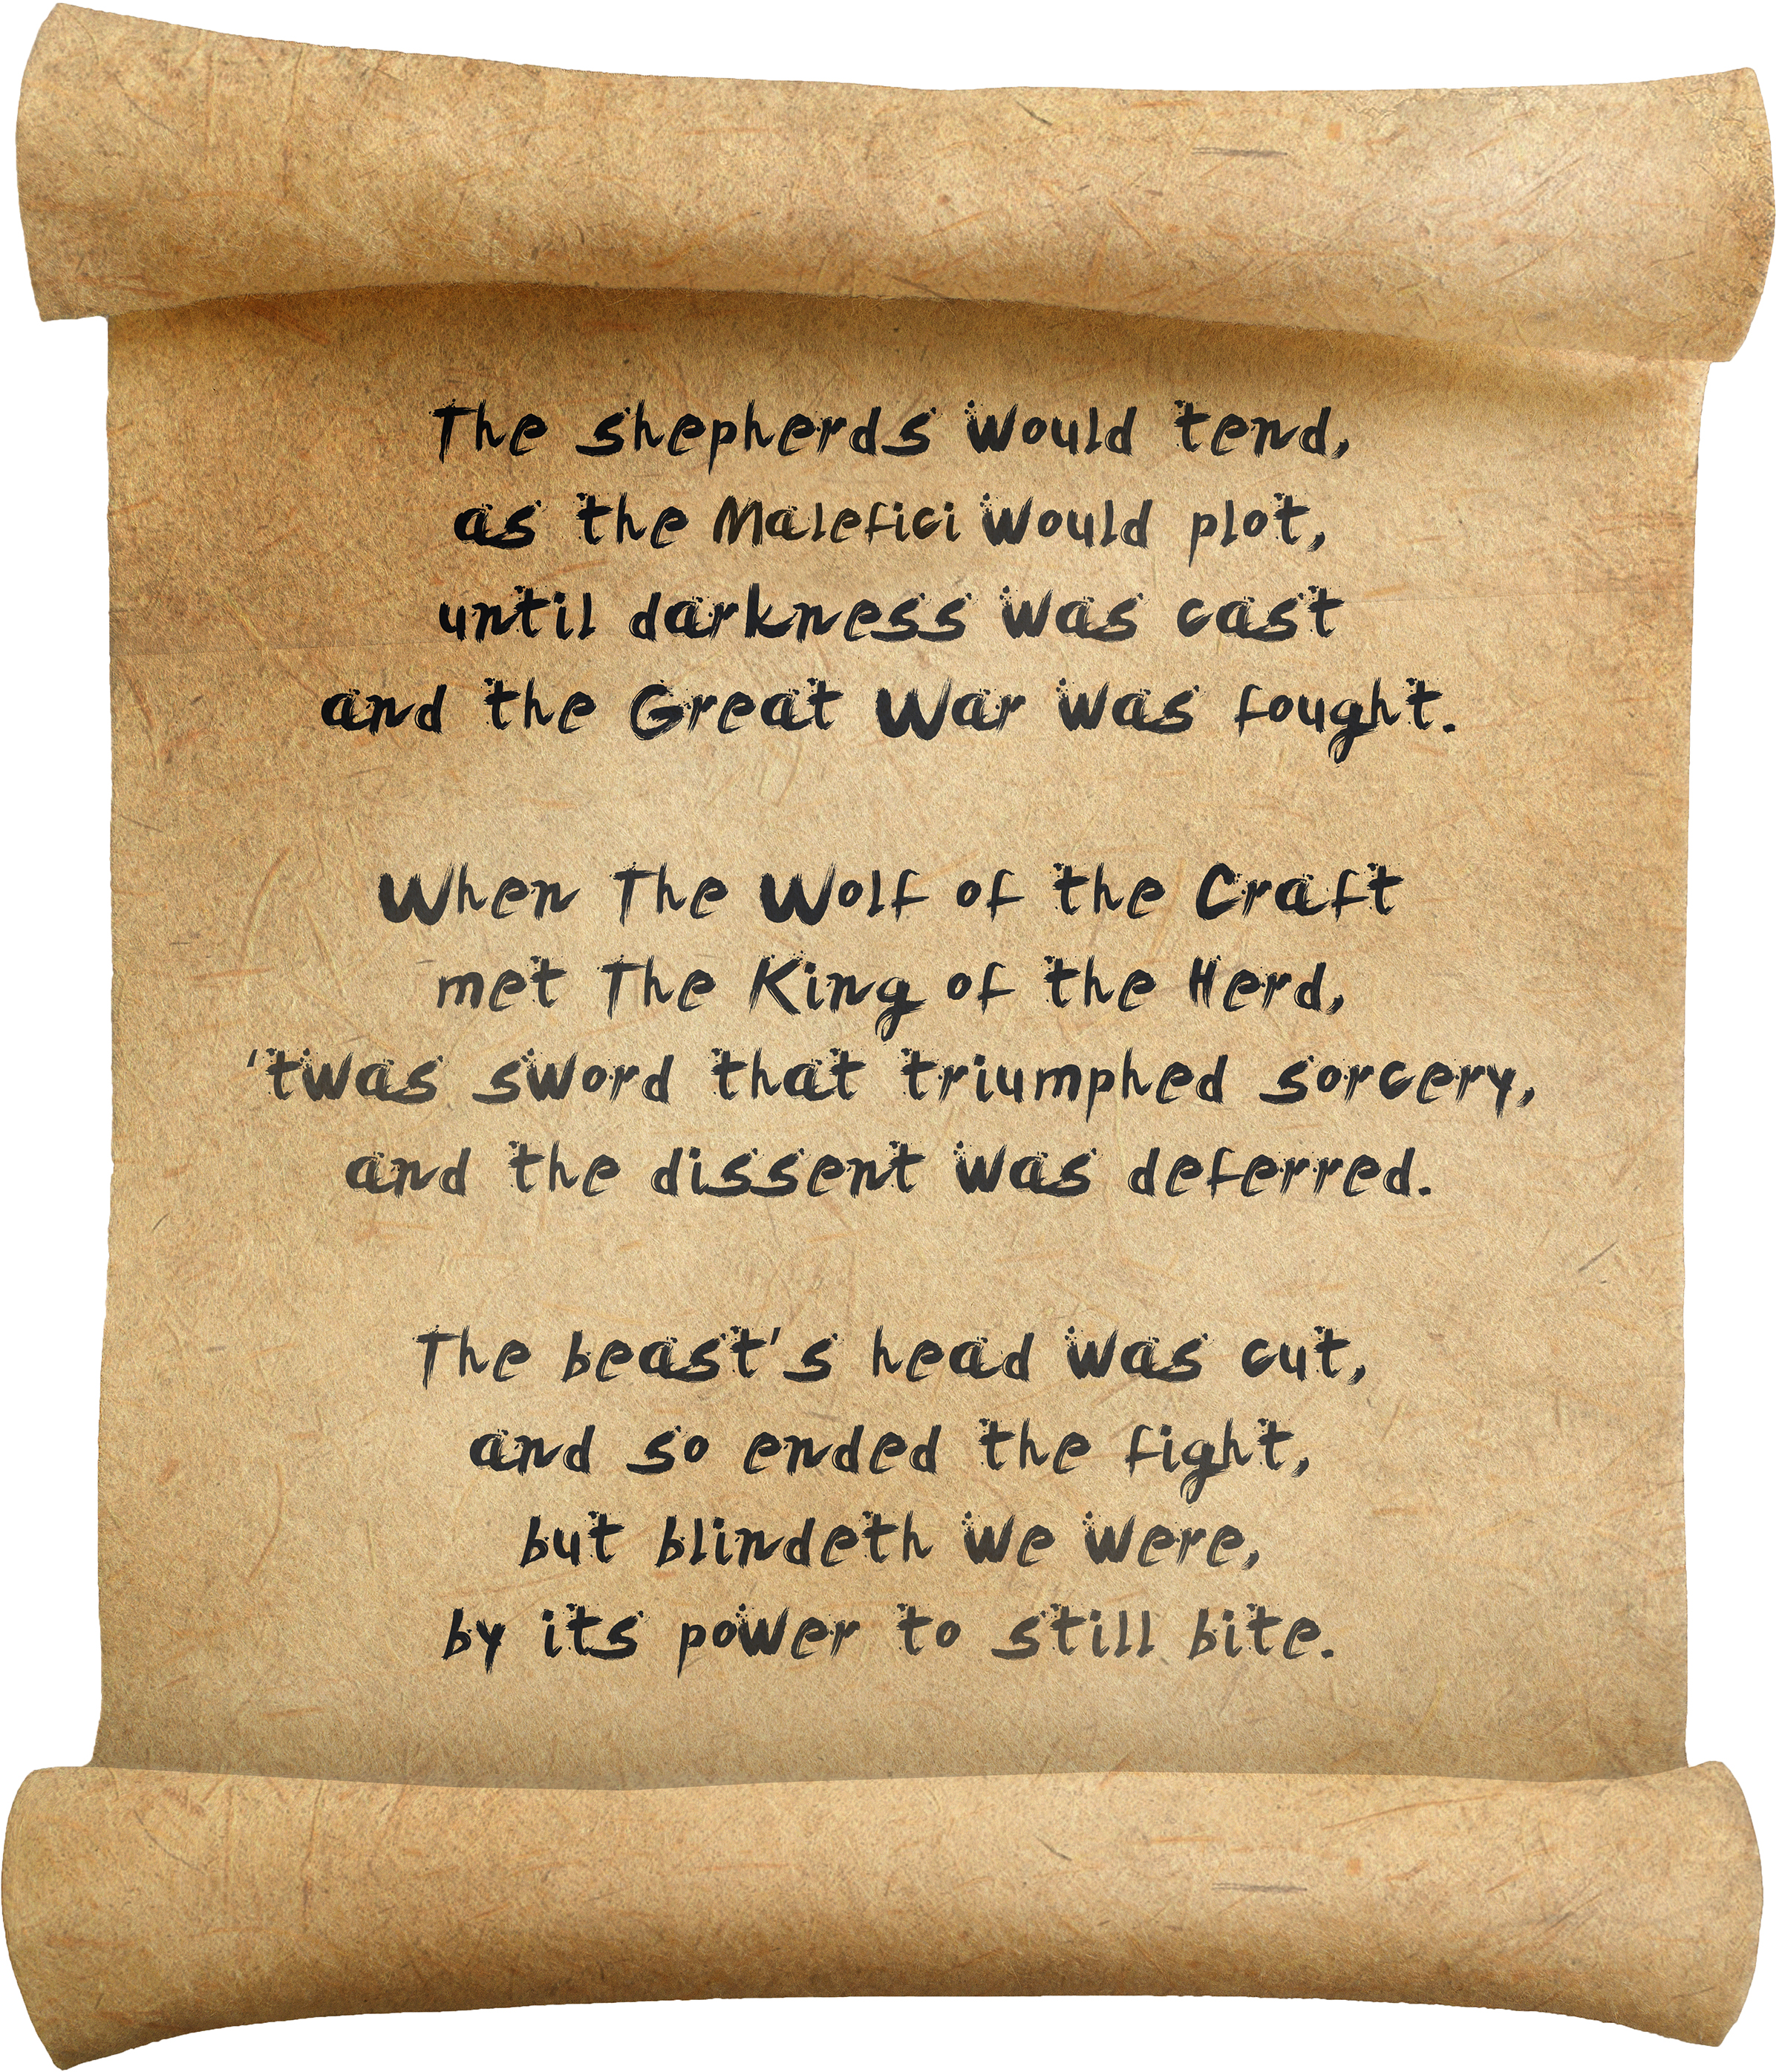 The shepherds would tend,
as the Malefici would plot,
until darkness was cast
and the Great War was fought.
When The Wolf of the Craft
met The King of the Herd,
'twas sword that triumphed sorcery,
and the dissent was deferred.
The beast's head was cut,
and so ended the fight,
but blindeth we were,
by its power to still bite.